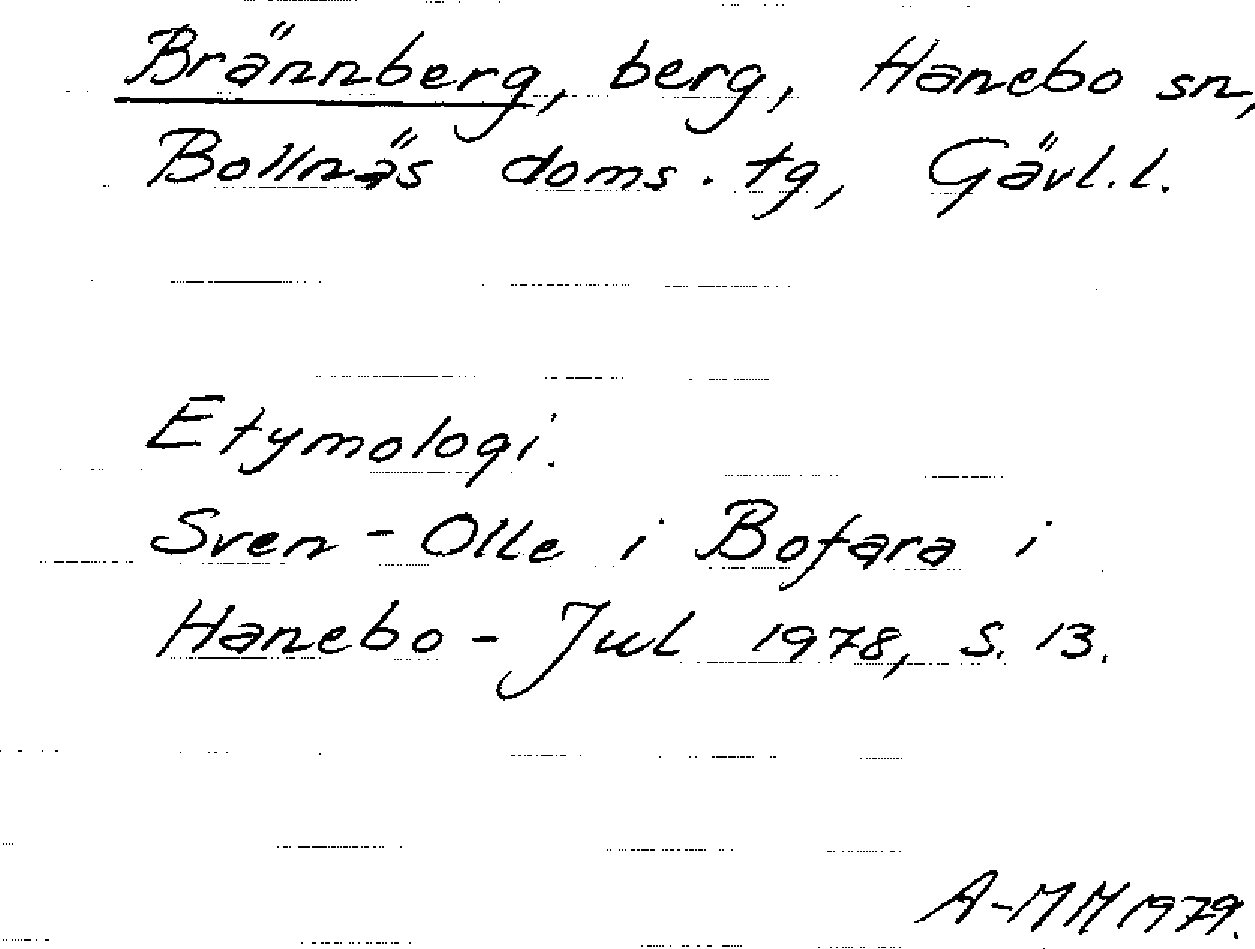 Brännberg, berg, Hanebo sn,
Bollnäs doms. tg, Gävl.l.
Etymologi.
Sven-Olle i Bofara i
Hanebo-Jul 1978, s. 13.
A-MM 1979.